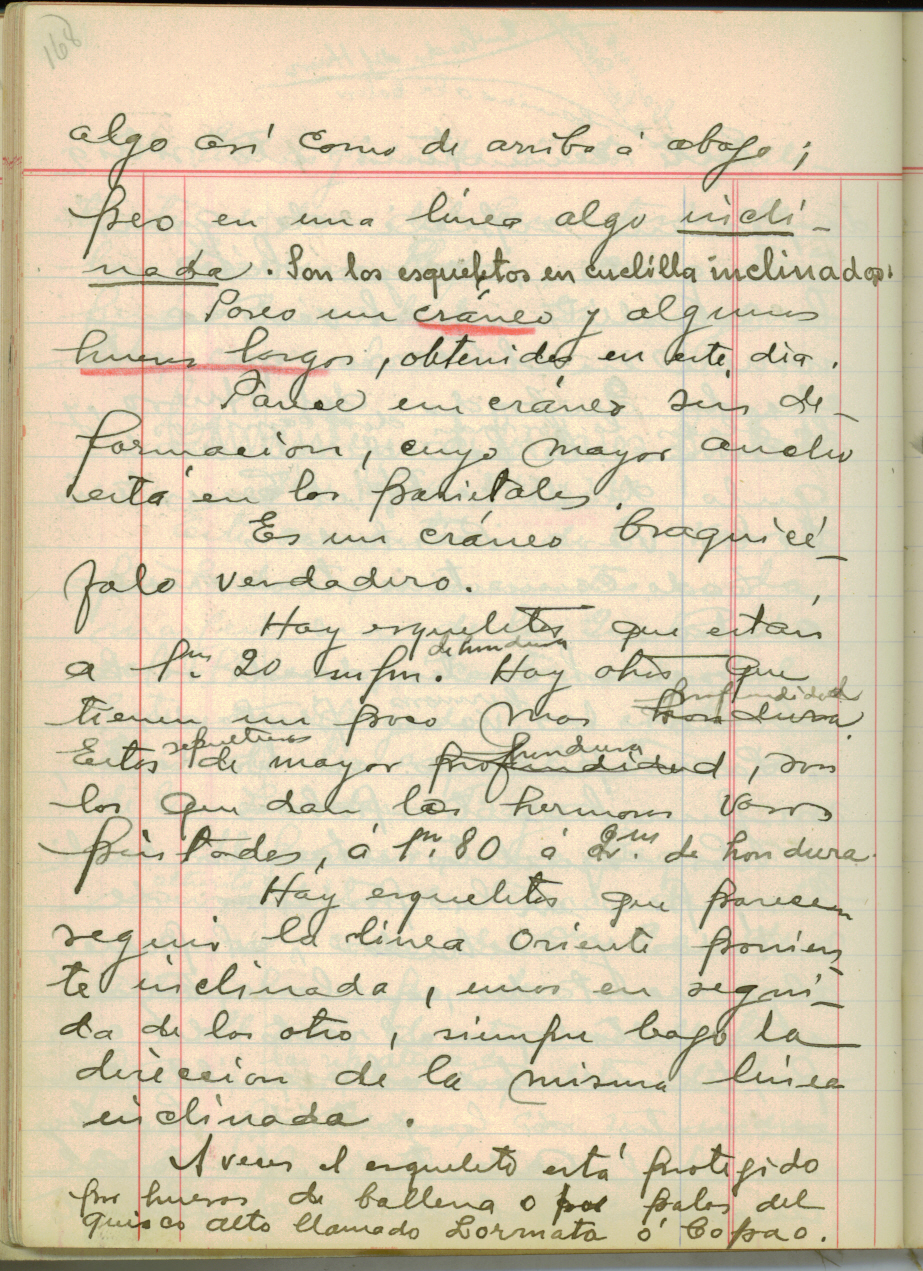 168
algo así como de arriba á abajo;
pero en una línea algo incli-
nada. Son los esqueletos en cuclilla inclinados.
Poseo un cráneo y algunos
huesos largos, obtenidos en este dia.
Parece un cráneo sin de-
formacion, cuyo mayor ancho
está en los parietales.
Es un cráneo braquicé-
falo verdadero.
Hay esqueletos que están
de hondura
a 1m. 20 m/m. Hay otros que
profundidad
tienen un poco mas hondura.
sepulturas hundura
Estos de mayor profundidad, son
los que dan los hermosos vasos
pintados, á 1m. 80 á 2.ms de hondura.
Hay esqueletos que parecen
seguir la línea Oriente ponien
te inclinada, unos en segui-
da de los otro, siempre bajo la
direccion de la misma línea
inclinada.
A veces el esqueleto está protegido
por huesos de ballena o por palos del
quisco alto llamado Lormata ó Copao.